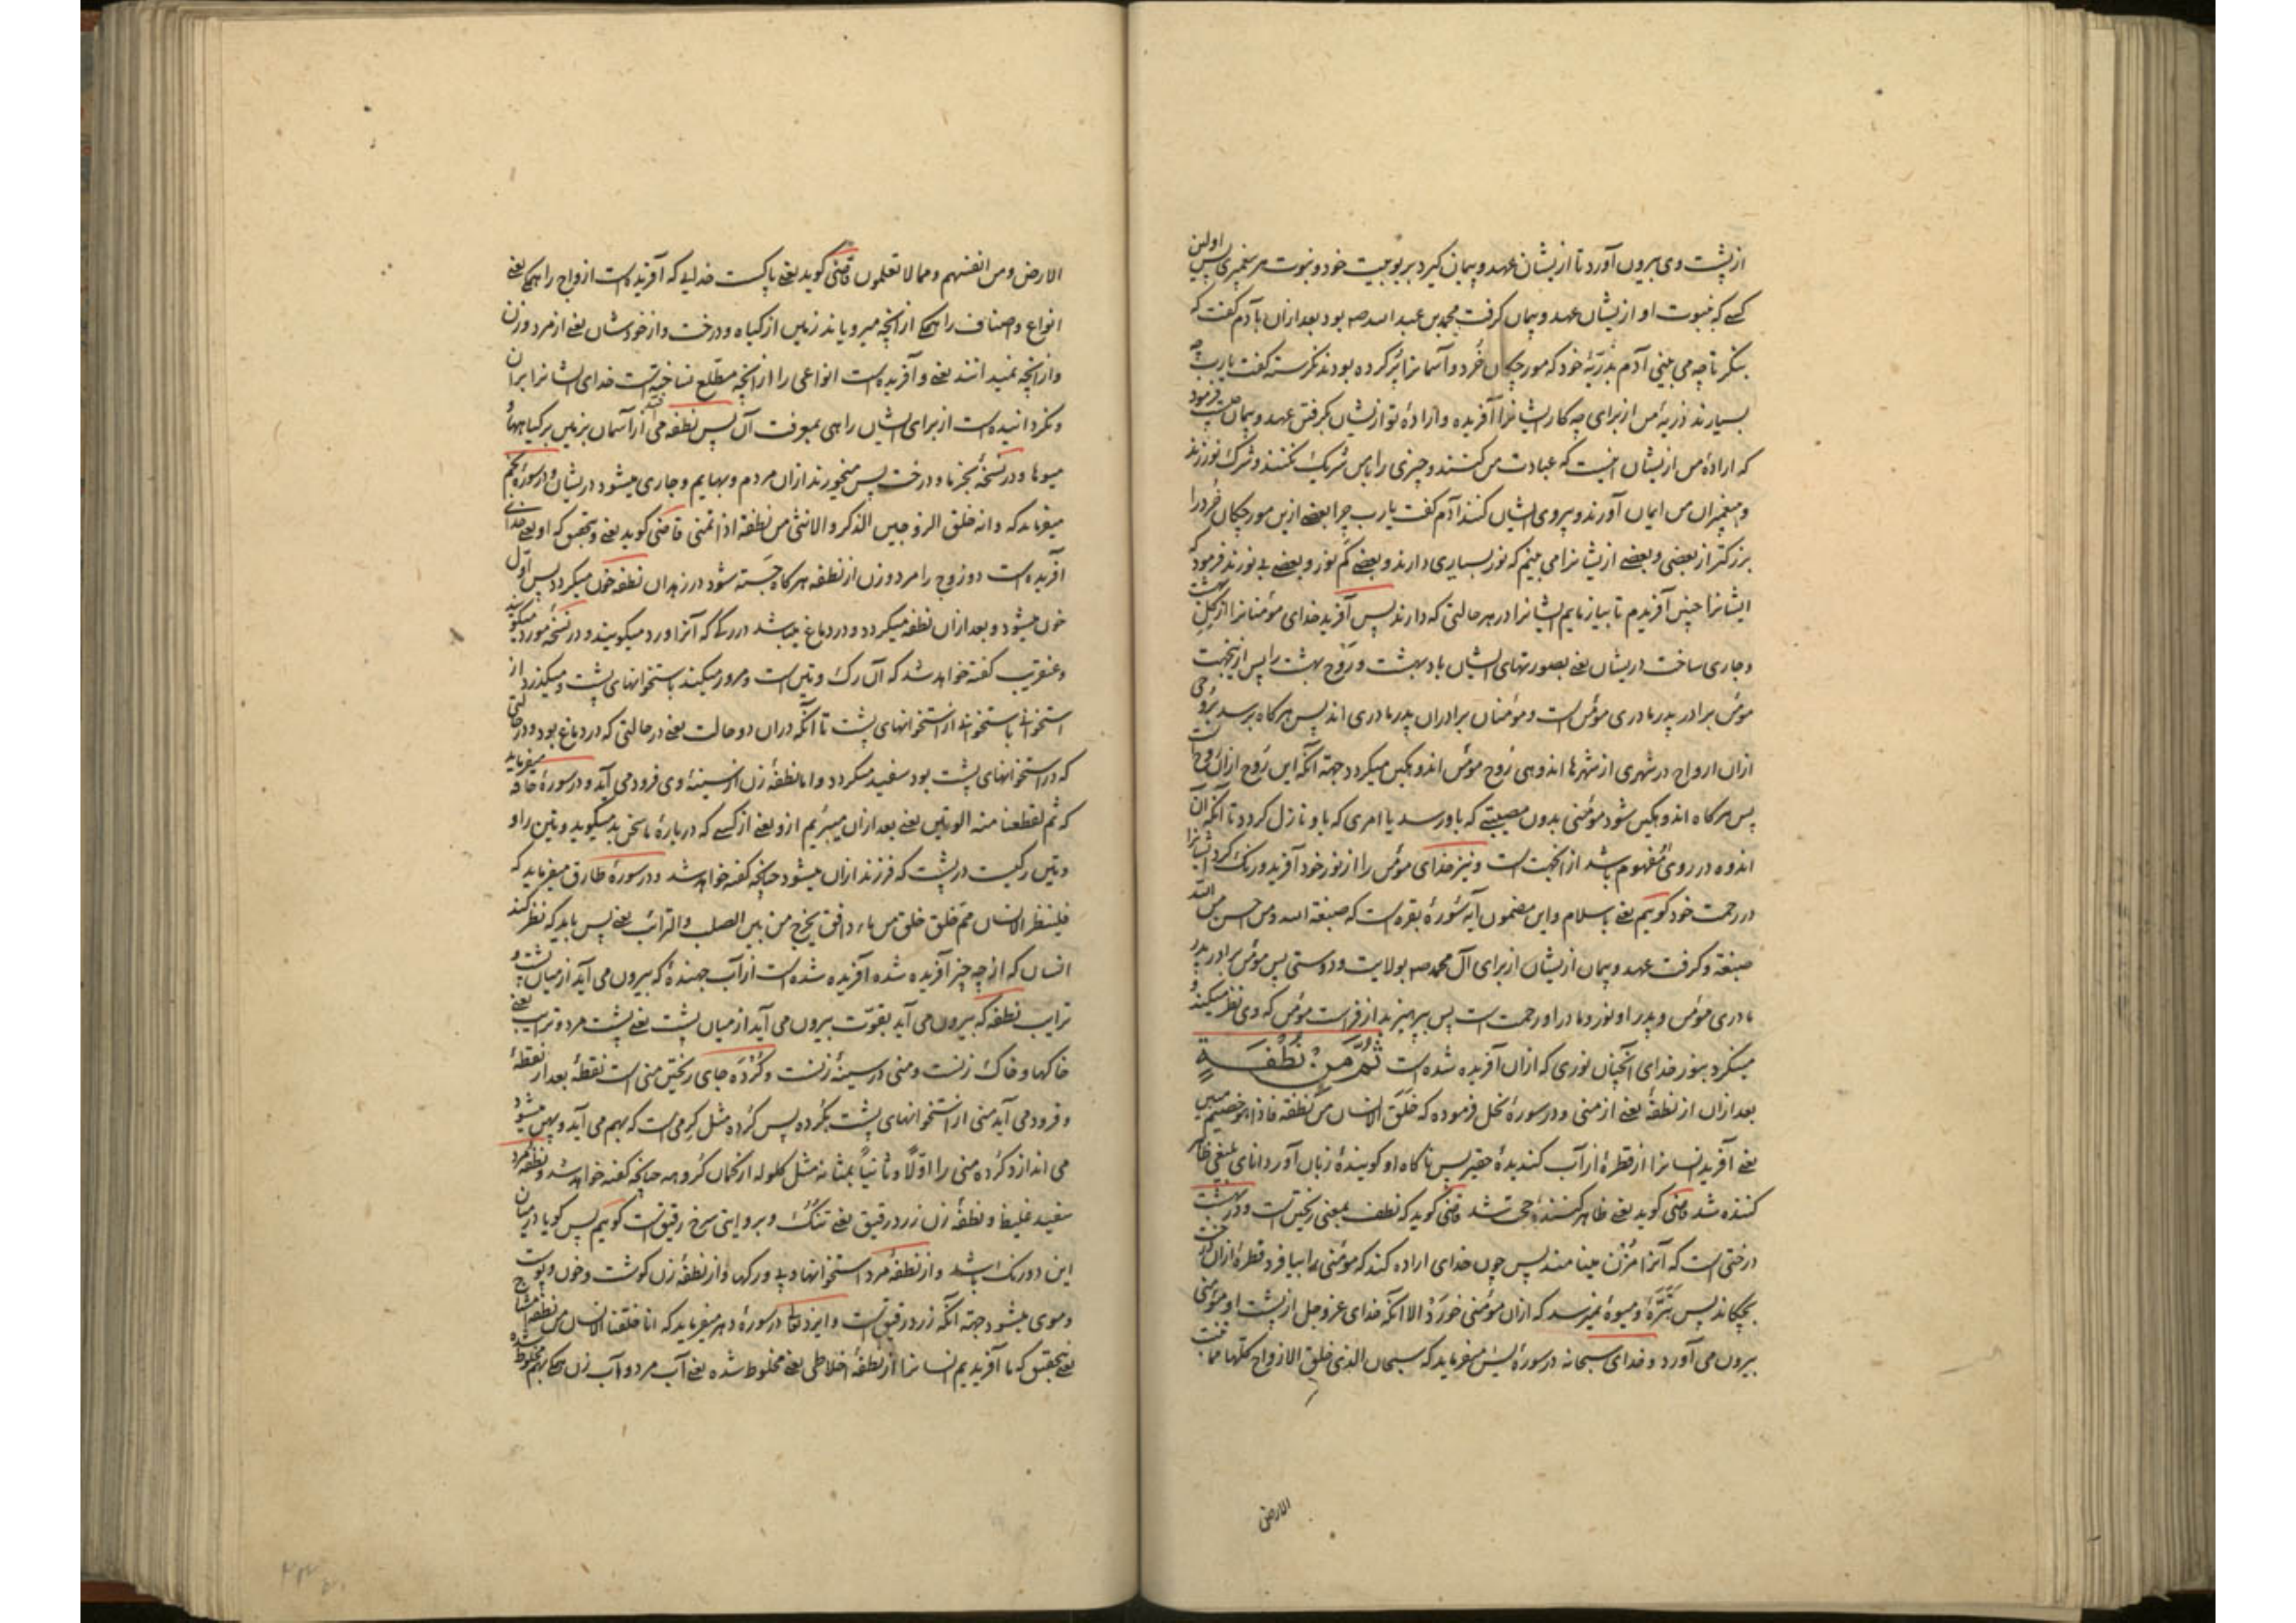 از پشت وی بیرون آورد تا از یشان عهد و پیمان گیرد بربوبیت خود و نبوت هر پیغمبری پس اولین
کسے که بنبوت او از یشان عهد و پیمان گرفت محمد بن عبد الله صه بود بعد ازان بآدم گفت که
بنکر تا چه می بینی آدم بذریّهٔ خود که مورچکان خُرد و آسمانرا پُر کرده بودند نکرسته گفت یا رب چه
بسیارند ذریهٔ من از برای چه کار ایشانرا آفریده و ارادهٔ تو از یشان بکرفتن عهد و پیمان چیست فرمود
که ارادهٔ من از یشان اینست که عبادت من کنند و چیزی را با من شریک نکنند و شرک نورزند
و پیغمبران من ایمان آورند و پیروی ایشان کنند آدم گفت یا رب چرا بعضے ازین مورچکان خُرد را
بزرکتر از بعضی و بعضے از یشانرا می بینم که نور بسیاری دارند و بعضے کم نور و بعضے بے نورند فرمود که
ایشانرا چنین آفریدم تا بیازمایم ایشانرا در هر حالتی که دارند پس آفرید خدای مؤمنانرا از کلِ بهشت
و جاری ساخت در یشان یعنے بصورتهای ایشان باد بهشت و رَوح بهشت را پس ازینجهت
مؤمن برادر پدر مادری مؤمن است و مؤمنان برادران پدر مادری اند پس هر کاه برسد بروحی
ازان ارواح در شهری از شهرها اندوهی رُوح مؤمن اندوهکین میکردد جهته آنکه این رُوح ازان رُوحست
پس هر کاه اندوهکین شود مؤمنی بدون مصیبتے که باو رسد یا امری که باو نازل کردد تا آنکه آن
اندوه در روی مفهوم باشد از آنجهت است و نیز خدای مؤمن را از نور خود آفرید و رنک کرد ایشانرا
در رحمت خود کوییم یعنے باسلام و این مضمون آیه سُورهٔ بقره است که صبغة الله و من احسن من الله
صبغة و کرفت عهد و پیمان از یشان از برای آل محمد صه بولایت و دوستی پس مؤمن برادر پدر
مادری مؤمن و پدر او نور و مادر او رحمت است پس بپرهیزید از فراست مؤمن که وی نظر میکند و
مینکرد بنور خدای آنچنان نوری که ازان آفریده شده است ثُمَّ مِنْ نُطْفَةٍ
بعد ازان از نطفهٔ یعنے از منی و در سورهٔ نحل فرموده که خَلَقَ الانسان من نطفة فاذا هو خصیم مبین
یعنے آفرید انسانرا از قطرهٔ از آب کندیدهٔ حقیر پس ناکاه او کویندهٔ زبان آور دانای بلیغی ظاهر
کننده شد قاضی کوید یعنے ظاهر کنندهٔ حجت شد قاضی کوید که نطف بمعنی ریختن است و در بهشت
درختی است که آنرا مُزن مینامند پس چون خدای اراده کند که مؤمنی را بیافرد قطرهٔ ازان درخت
بچکاند پس بتَرّهٔ و میوهٔ نمیرسد که ازان مؤمنی خورَدْ الا آنکه خدای عز و جل از پشت او مؤمنی
بیرون می آورد و خدای سبحانه در سورهٔ یس میفرماید که سبحان الذی خلق الازواج کلها مما تنبت
الارض
الارض و من انفسهم و مما لا تعلمون قاضی کوید یعنے پاکست خدایے که آفریده است ازواج را همکے یعنے
انواع و اصناف را همکے از آنچه میرویاند زمین از کیاه و درخت و از خودشان یعنے از مرد و زن
و از آنچه نمیدانند یعنے و آفریده است انواعی را از آنچه مطّلع نساخته است خدای ایشانرا بران
و نکردانیده است از برای ایشان راهی بمعرفت آن پس نطفه می افتد از آسمان بزمین بر کیاهها و
میوها و در نسخهٔ بخرما و درخت پس میخورند ازان مردم و بهایم و جاری میشود در یشان و در سورهٔ نجم
میفرماید که و انه خلق الزوجین الذکر و الانثی من نطفة اذا تمنی قاضی کوید یعنے و بتحقیق که او یعنے خدای
آفریده است دو زوج را مرد و زن از نطفه هر کاه جَسته شود در زهدان نطفه خون میکردد پس اوّل
خون میشود و بعد ازان نطفه میکردد و در دماغ میباشد در رکے که آنرا ورد میکویند و در نسخهٔ مورد میکوید
و عنقریب کفته خواهد شد که آن رک وتین است و مرور میکند باستخوانهای پشت و میکذرد از
استخوانی باستخوانے از استخوانهای پشت تا آنکه دران دو حالت یعنے در حالتی که در دماغ بود و در حالتی
که در استخوانهای پشت بود سفید میکردد و اما نطفهٔ زن از سینهٔ وی فرود می آید و در سورهٔ حاقه میفرماید
که ثم لقطعنا منه الوتین یعنے بعد ازان میبریم ازو یعنے از کسے که دربارهٔ ما سخن بد میکوید وتین را و
وتین رکیست در پشت که فرزند ازان میشود چنانکه کفته خواهد شد و در سورهٔ طارق میفرماید که
فلینظر الانسان ممّ خلق خلق من ماء دافق یخرج من بین الصلب و الترائب یعنے پس باید که نظر کند
انسان که از چه چیز آفریده شده آفریده شده است از آب جهندهٔ که بیرون می آید از میان پشت و
ترایب نطفه که بیرون می آید بقوّت بیرون می آید از میان پشت یعنے پشت مرد و ترایب یعنے
خاکها و خاک زنست و منی در سینهٔ زنست و کُرْدَه جای ریختن منی است نقطهٔ بعد از نقطهٔ
و فرود می آید منی از استخوانهای پشت بکرده پس کُرده مثل کِرمی است که بهم می آید و پهن میشود
می اندازد کُرده منی را اوّلًا و ثانیاً بمثانه مثل کلوله از کمان کُروهه چنانکه کفته خواهد شد و نطفهٔ مرد
سفید غلیظ و نطفهٔ زن زرد رقیق یعنے تنک و بروایتی سرخ رقیق است کوییم پس کویا در میان
این دو رنک باشد و از نطفهٔ مرد استخوانها و پی و رکها و از نطفهٔ زن کوشت و خون و پوست
و موی میشود جهته آنکه زرد رقیق است و ایزد تعا در سورهٔ دهر میفرماید که انا خلقنا الانسان من نطفة امشاج
یعنے بتحقیق که ما آفریدیم انسانرا از نطفهٔ اخلاطی یعنے مخلوط شده یعنے آب مرد و آب زن همکے بهم مخلوط شده